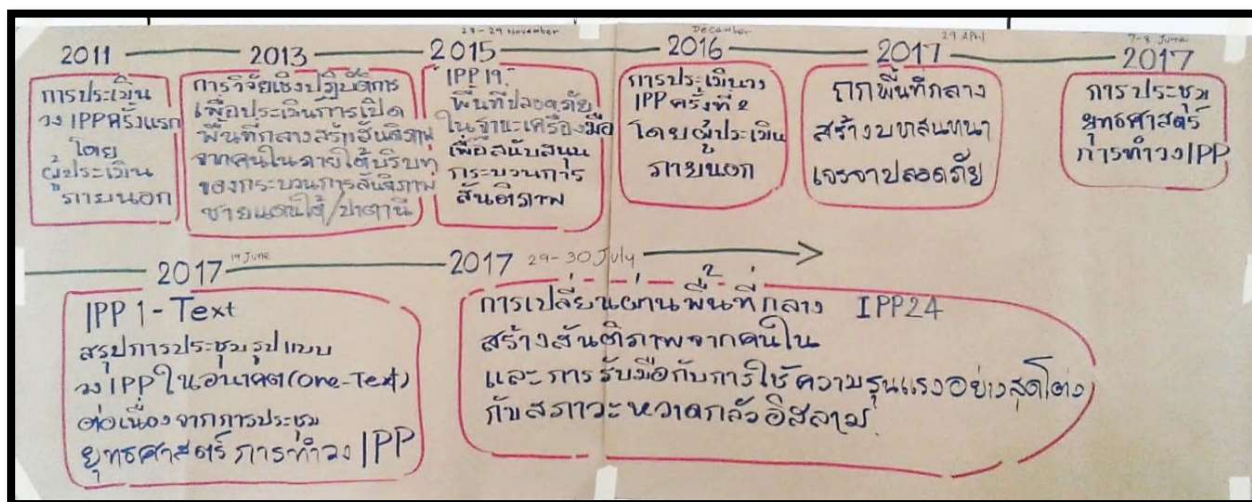 2011
การประเมิน
วง IPPครั้งแรก
โดย
ผู้ประเมิน
ภายนอก
2013
การวิจัยเชิงปฏิบัติการ
เพื่อประเมินการเปิด
พื้นที่กลางสร้างสันติภาพ
จากคนในภายใต้บริบท
ของกระบวนการสันติภาพ
ชายแดนใต้/ปาตานี
28-29 November
2015
"IPP19"
พื้นที่ปลอดภัย
ในฐานะเครื่องมือ
เพื่อสนับสนุน
กระบวนการ
สันติภาพ
December
2016
การประเมินวง
IPP ครั้งที่ 2
โดยผู้ประเมิน
ภายนอก
29 April
2017
ถกพื้นที่กลาง
สร้างบทสนทนา
เจรจาปลอดภัย
7-8 June
2017
การประชุม
ยุทธศาสตร์
การทำวง IPP
2017 19 June
IPP 1 - Text
สรุปการประชุมรูปแบบ
วง IPP ในอนาคต(One-Text)
ต่อเนื่องจากการประชุม
ยุทธศาสตร์การทำวง IPP
2017 29-30 July
การเปลี่ยนผ่านพื้นที่กลาง IPP24
สร้างสันติภาพจากคนใน
และการรับมือกับการใช้ความรุนแรงอย่างสุดโต่ง
กับสภาวะหวาดกลัวอิสลาม